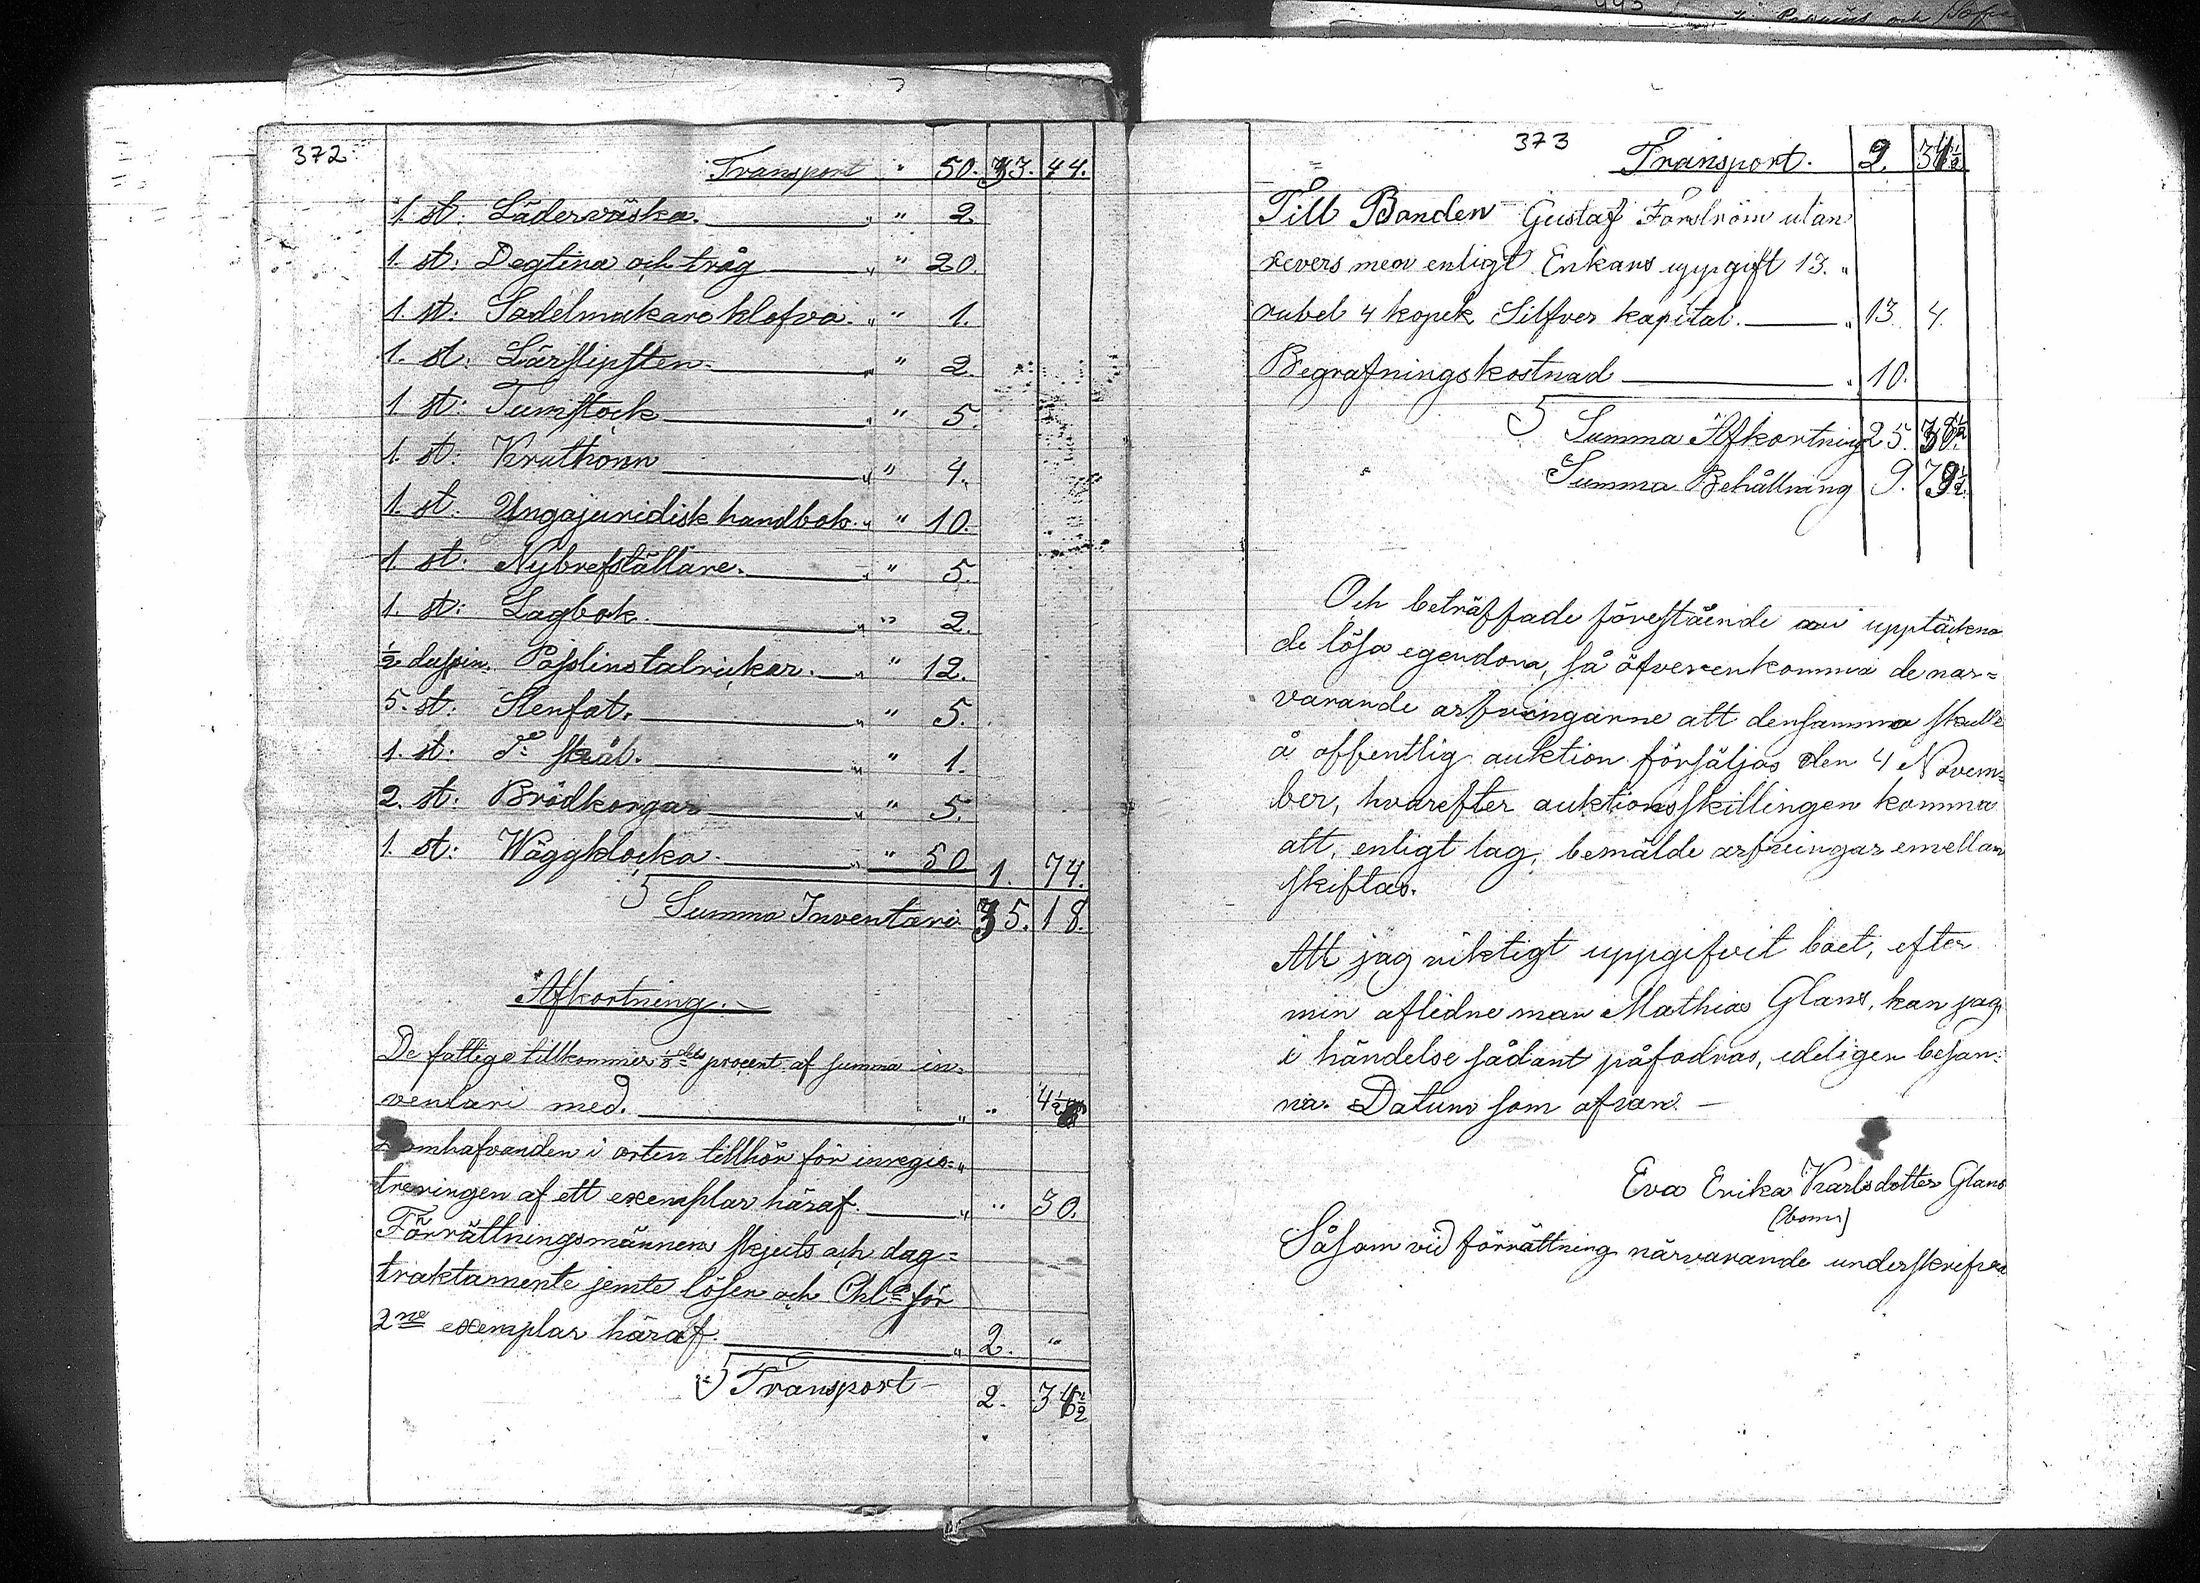 372
Transport " 50. 33. 44.
1. st: Läderväska. " " 2.
1. st: Degtina och tråg " " 20.
1 st: Sadelmakare klofva. " " 1.
1. st: Lärslipsten. " " 2.
1 st: Tumstock " " 5.
1. st: Kruthorn " " 4.
1 st. Yngajuridisk handbok. " " 10.
1 st: Nybrefställare. " " 5.
1. st: Lagbok. " " 2.
½ dussin. Posslinstalrickar. " " 12.
5. st: Stenfat. " " 5.
1. st: Do skål. " " 1.
2. st: Brödkorgar " " 5.
1. st: Wäggklocka " " 50 1. 74.
Summa Inventari 35. 18.
Afkortning.
De fattige tillkommer 1/8 dels procent af summa in=
ventari med. " " 4½
omhafvanden i orten tillhör för inregis= "
treringen af ett exemplar häraf. " " 30.
Förrättningsmännens skjuts och dag=
traktamente jemte lösen och Chla för
2ne exemplar häraf. " 2. "
Transport 2. 34½
373
Transport. 2. 34½
Till Bonden Gustaf Forström utan
revers men enligt Enkans uppgift 13. "
rubel 4 kopek Silfver kapital. " 13 4.
Begrafningskostnad " 10.
Summa Afkortning 25. 38½
Summa Behållning 9. 79½
Och beträffade föreståènde upptäckna
de lösa egendom, så öfverenkomma de när=
varande arfvingarne att densamma skulle
å offentlig auktion försäljas den 4 Novem=
ber, hvarefter auktionsskillingen komma
att, enligt lag, bemälde arfvingar emellan
skiftas.
Att jag riktigt uppgifvit boet, efter
min aflidne man Mathias Glans, kan jag
i händelse sådant påfodras, edeligen besan=
na. Datum som ofvan. —
Eva Erika Karlsdotter Glans
(bom)
Såsom vid förrättning närvarande underskrifva